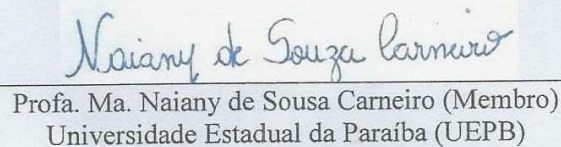 Naiany de Souza Carneiro
Profa. Ma. Naiany de Sousa Carneiro (Membro)
Universidade Estadual da Paraíba (UEPB)